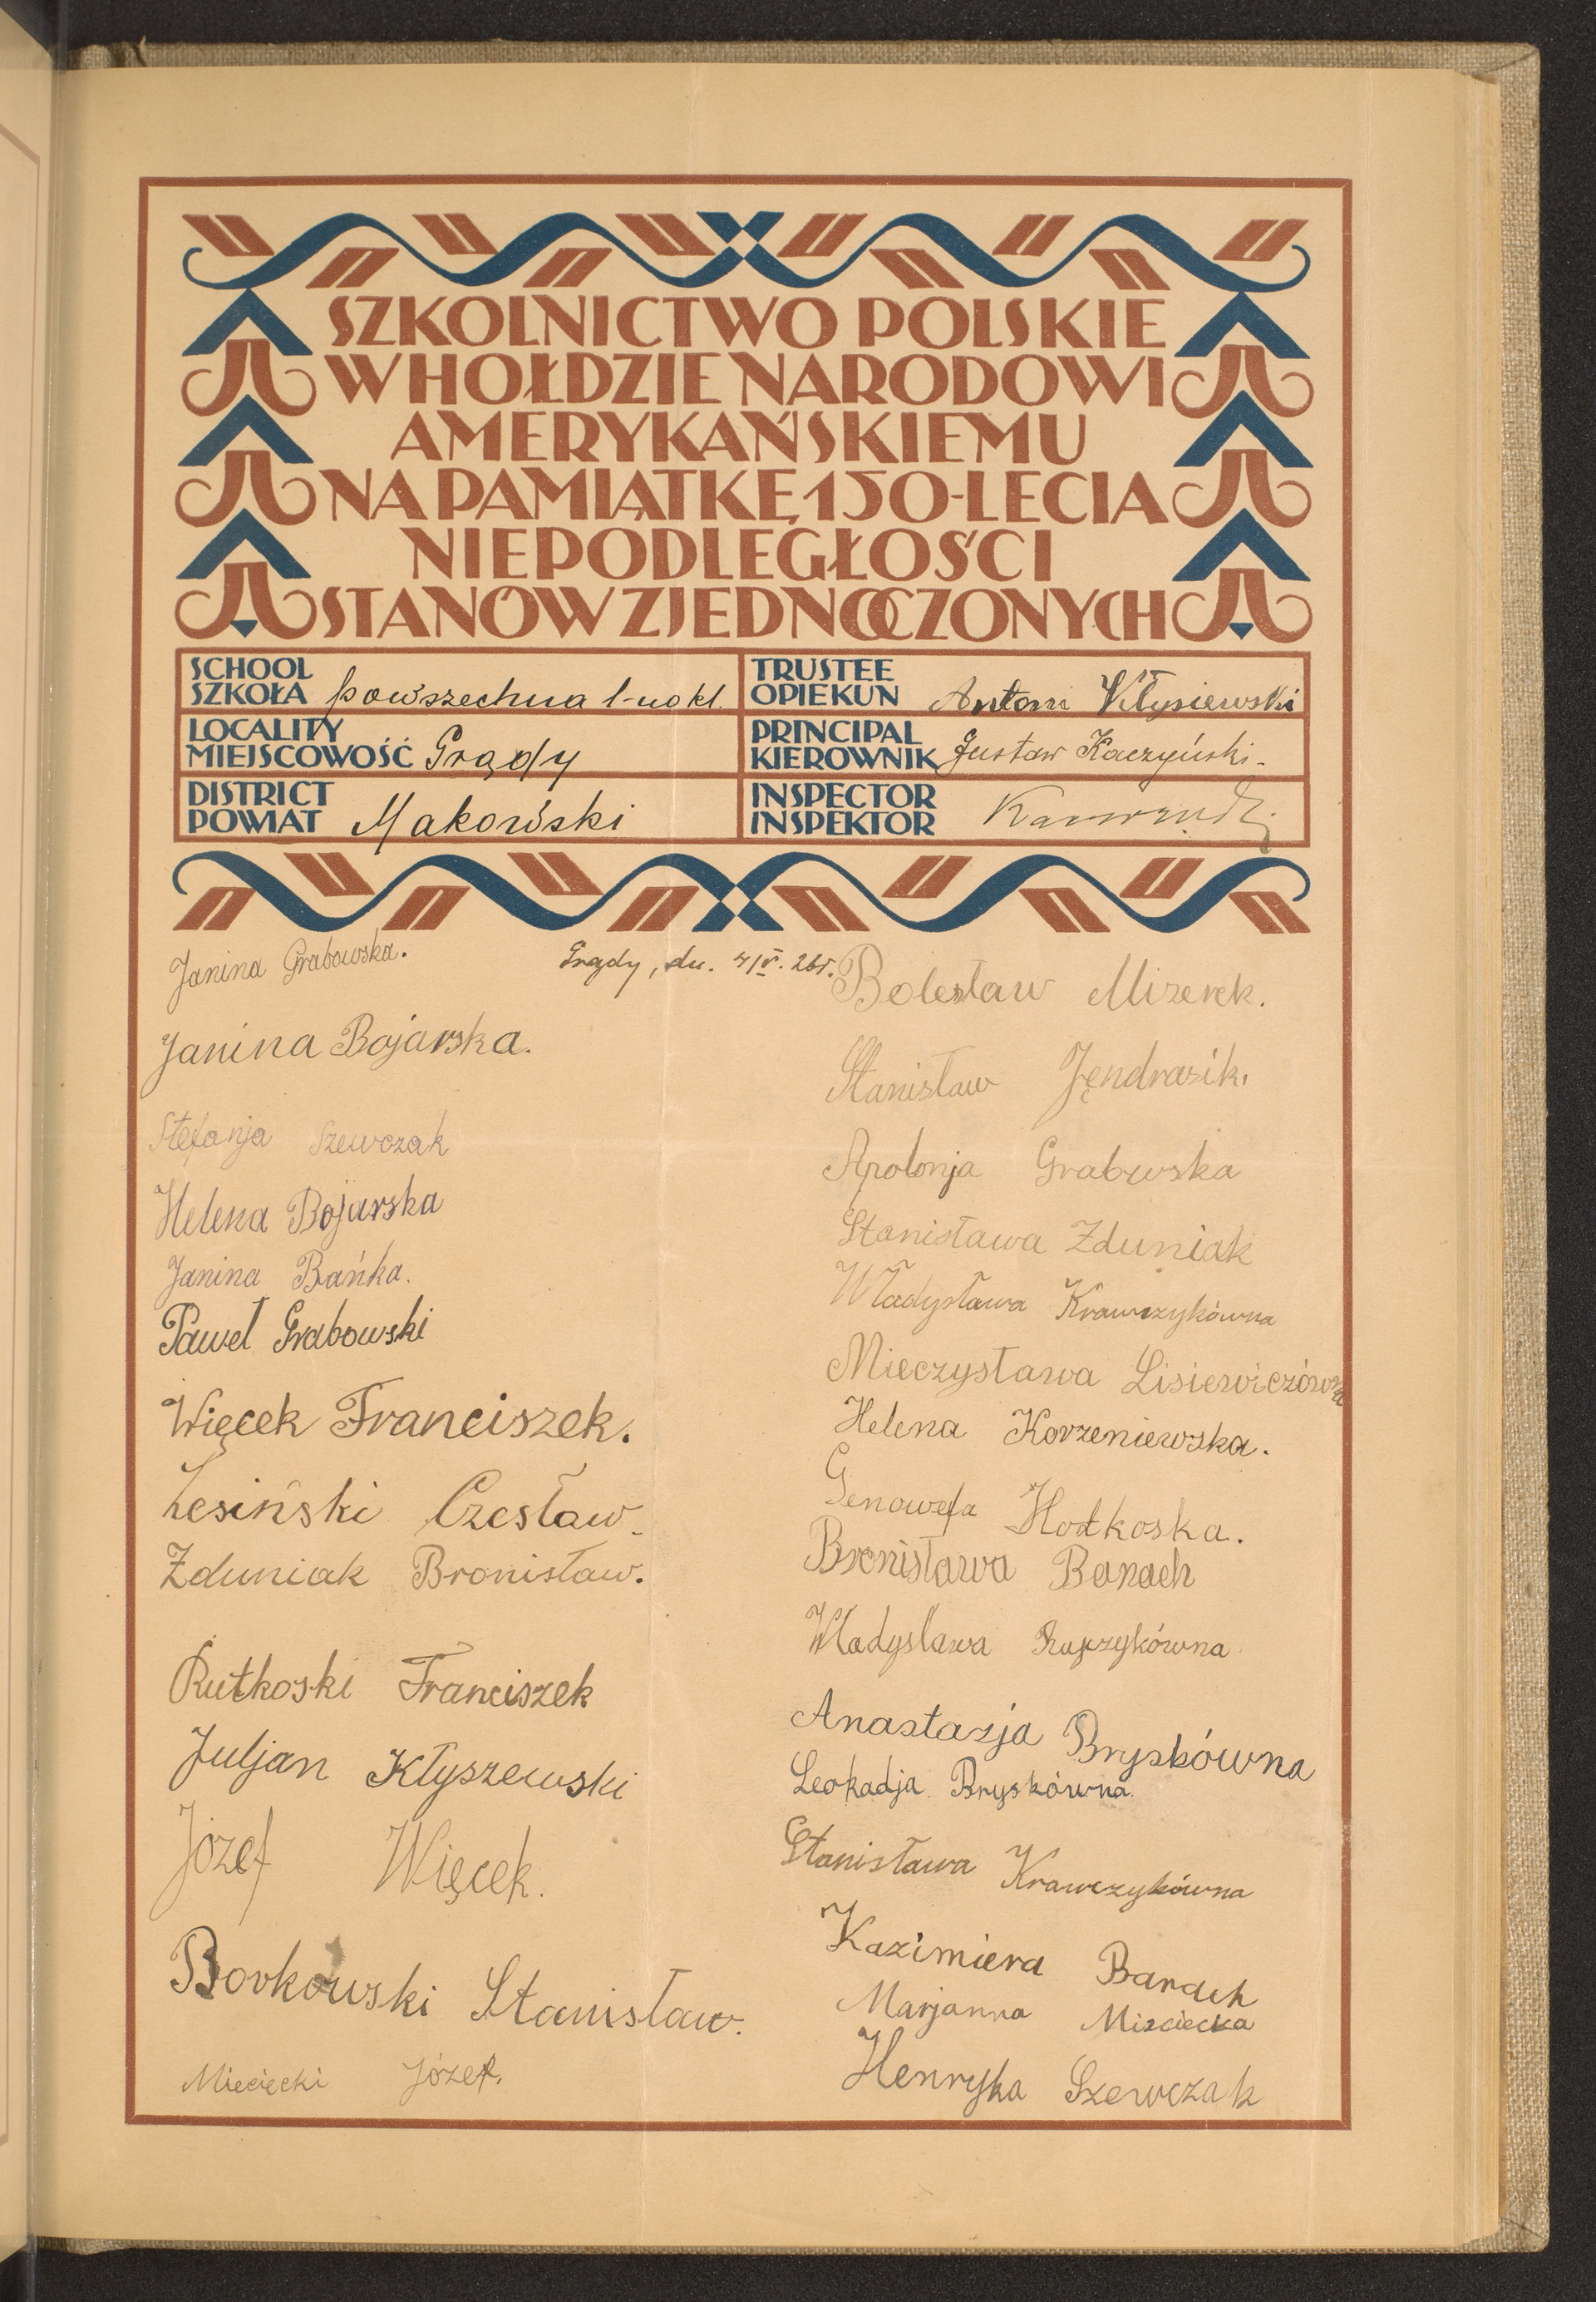 SZKOLNICTWO POLSKIE
W HOŁDZIE NARODOWI
AMERYKAŃSKIEMU
NA PAMIĄTKĘ 150-LECIA
NIEPODLEGŁOŚCI
STANÓW ZJEDNOCZONYCH
SCHOOL
SZKOŁA powszechna 1-no kl.
TRUSTEE
OPIEKUN Antoni
LOCALITY
MIEJSCOWOŚĆ Grądy
PRINCIPAL
KIEROWNIK Gustaw Kaczyński.
DISTRICT
POWIAT Makowski
INSPECTOR
INSPEKTOR
Grądy, dn.
Janina Grabowska.
Janina Bojarska.
Stefanja Szewczak
Helena Bojarska
Janina Bańka.
Paweł Grabowski
Więcek Franciszek.
Lesiński Czesław.
Zduniak Bronisław.
Rutkoski Franciszek
Juljan Kłyszewski
Józef Więcek.
Borkowski Stanisław.
Miecięcki Józef.
Bolesław Mizerek.
Stanisław Jędrasik.
Apolonja Grabwska
Stanisława Zduniak
Władysława Krawczykówna
Mieczysława Lisiewiczówna
Helena Korzeniewska.
Genowefa Hołkoska.
Bronisława Banach
Władysława
Anastazja Bryskówna
Leokadja Bryskówna.
Stanisława Krawczykówna
Kazimiera Banach
Marjanna
Henryka Szewczak